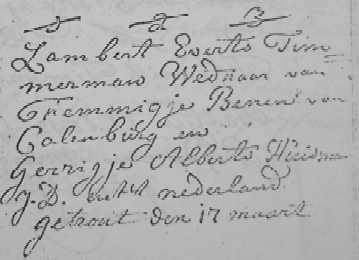 Lambert Everts Tim
merman Wednaar van
Gemmigje Benen van
Calenburg en
Gerrigje Alberts
J.D. uit't nederland
getrout den 17 maart